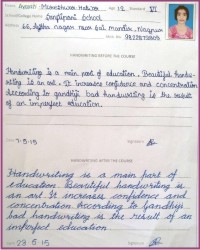 Name: Ayyash Muneshwar Habib Age 12 Standard VI
School/College Name Sanjipani School
HANDWRITING BEFORE THE COURSE
Handwriting is a main part of education. Beautiful handw-
riting is an art. It increases confidence and concentration
According to gandhiji bad handwriting is the result
of an imperfect education.
Date 7-5-15 Signature
HANDWRITING AFTER THE COURSE
Handwriting is a main part of
education Beautiful handwriting is
an art It increases confidence and
concentration According to Gandhiji
bad handwriting is the result of an
imperfect education
Date 23-5-15 Signature